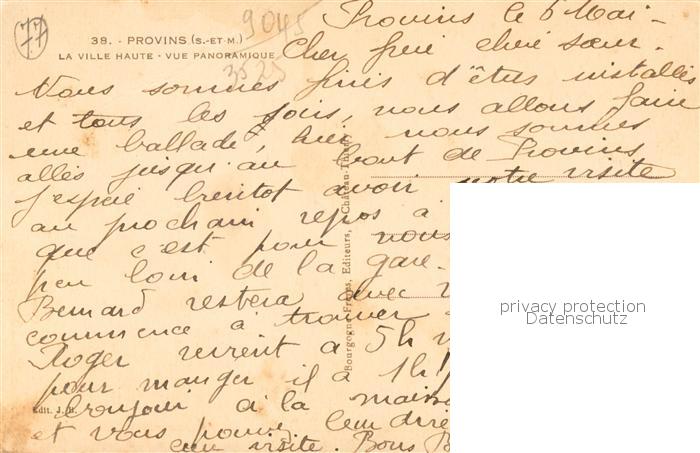 77
9045
3525
38. - PROVINS (S.-ET-M.)
LA VILLE HAUTE - VUE PANORAMIQUE
Provins le 6 Mai -
Cher frère chère sœur.
Nous sommes finis d'êtes installés
et tous les soirs, nous allons faire
une ballade, hier nous sommes
allés jusqu'au bout de Provins
j'espère bientot avoir votre visite
au prochain repos à
que c'est pour nous
peu loin de la gare -
Bernard restera avec
commence à trouver
Roger revient à 5h
pour manger il a 1h
Bonjour à la mais
et vous pouvez leur dire
une visite. Bons B
Bourgogne Frères, Editeurs, Château-Thierry
Edit. J. B.
privacy protection
Datenschutz